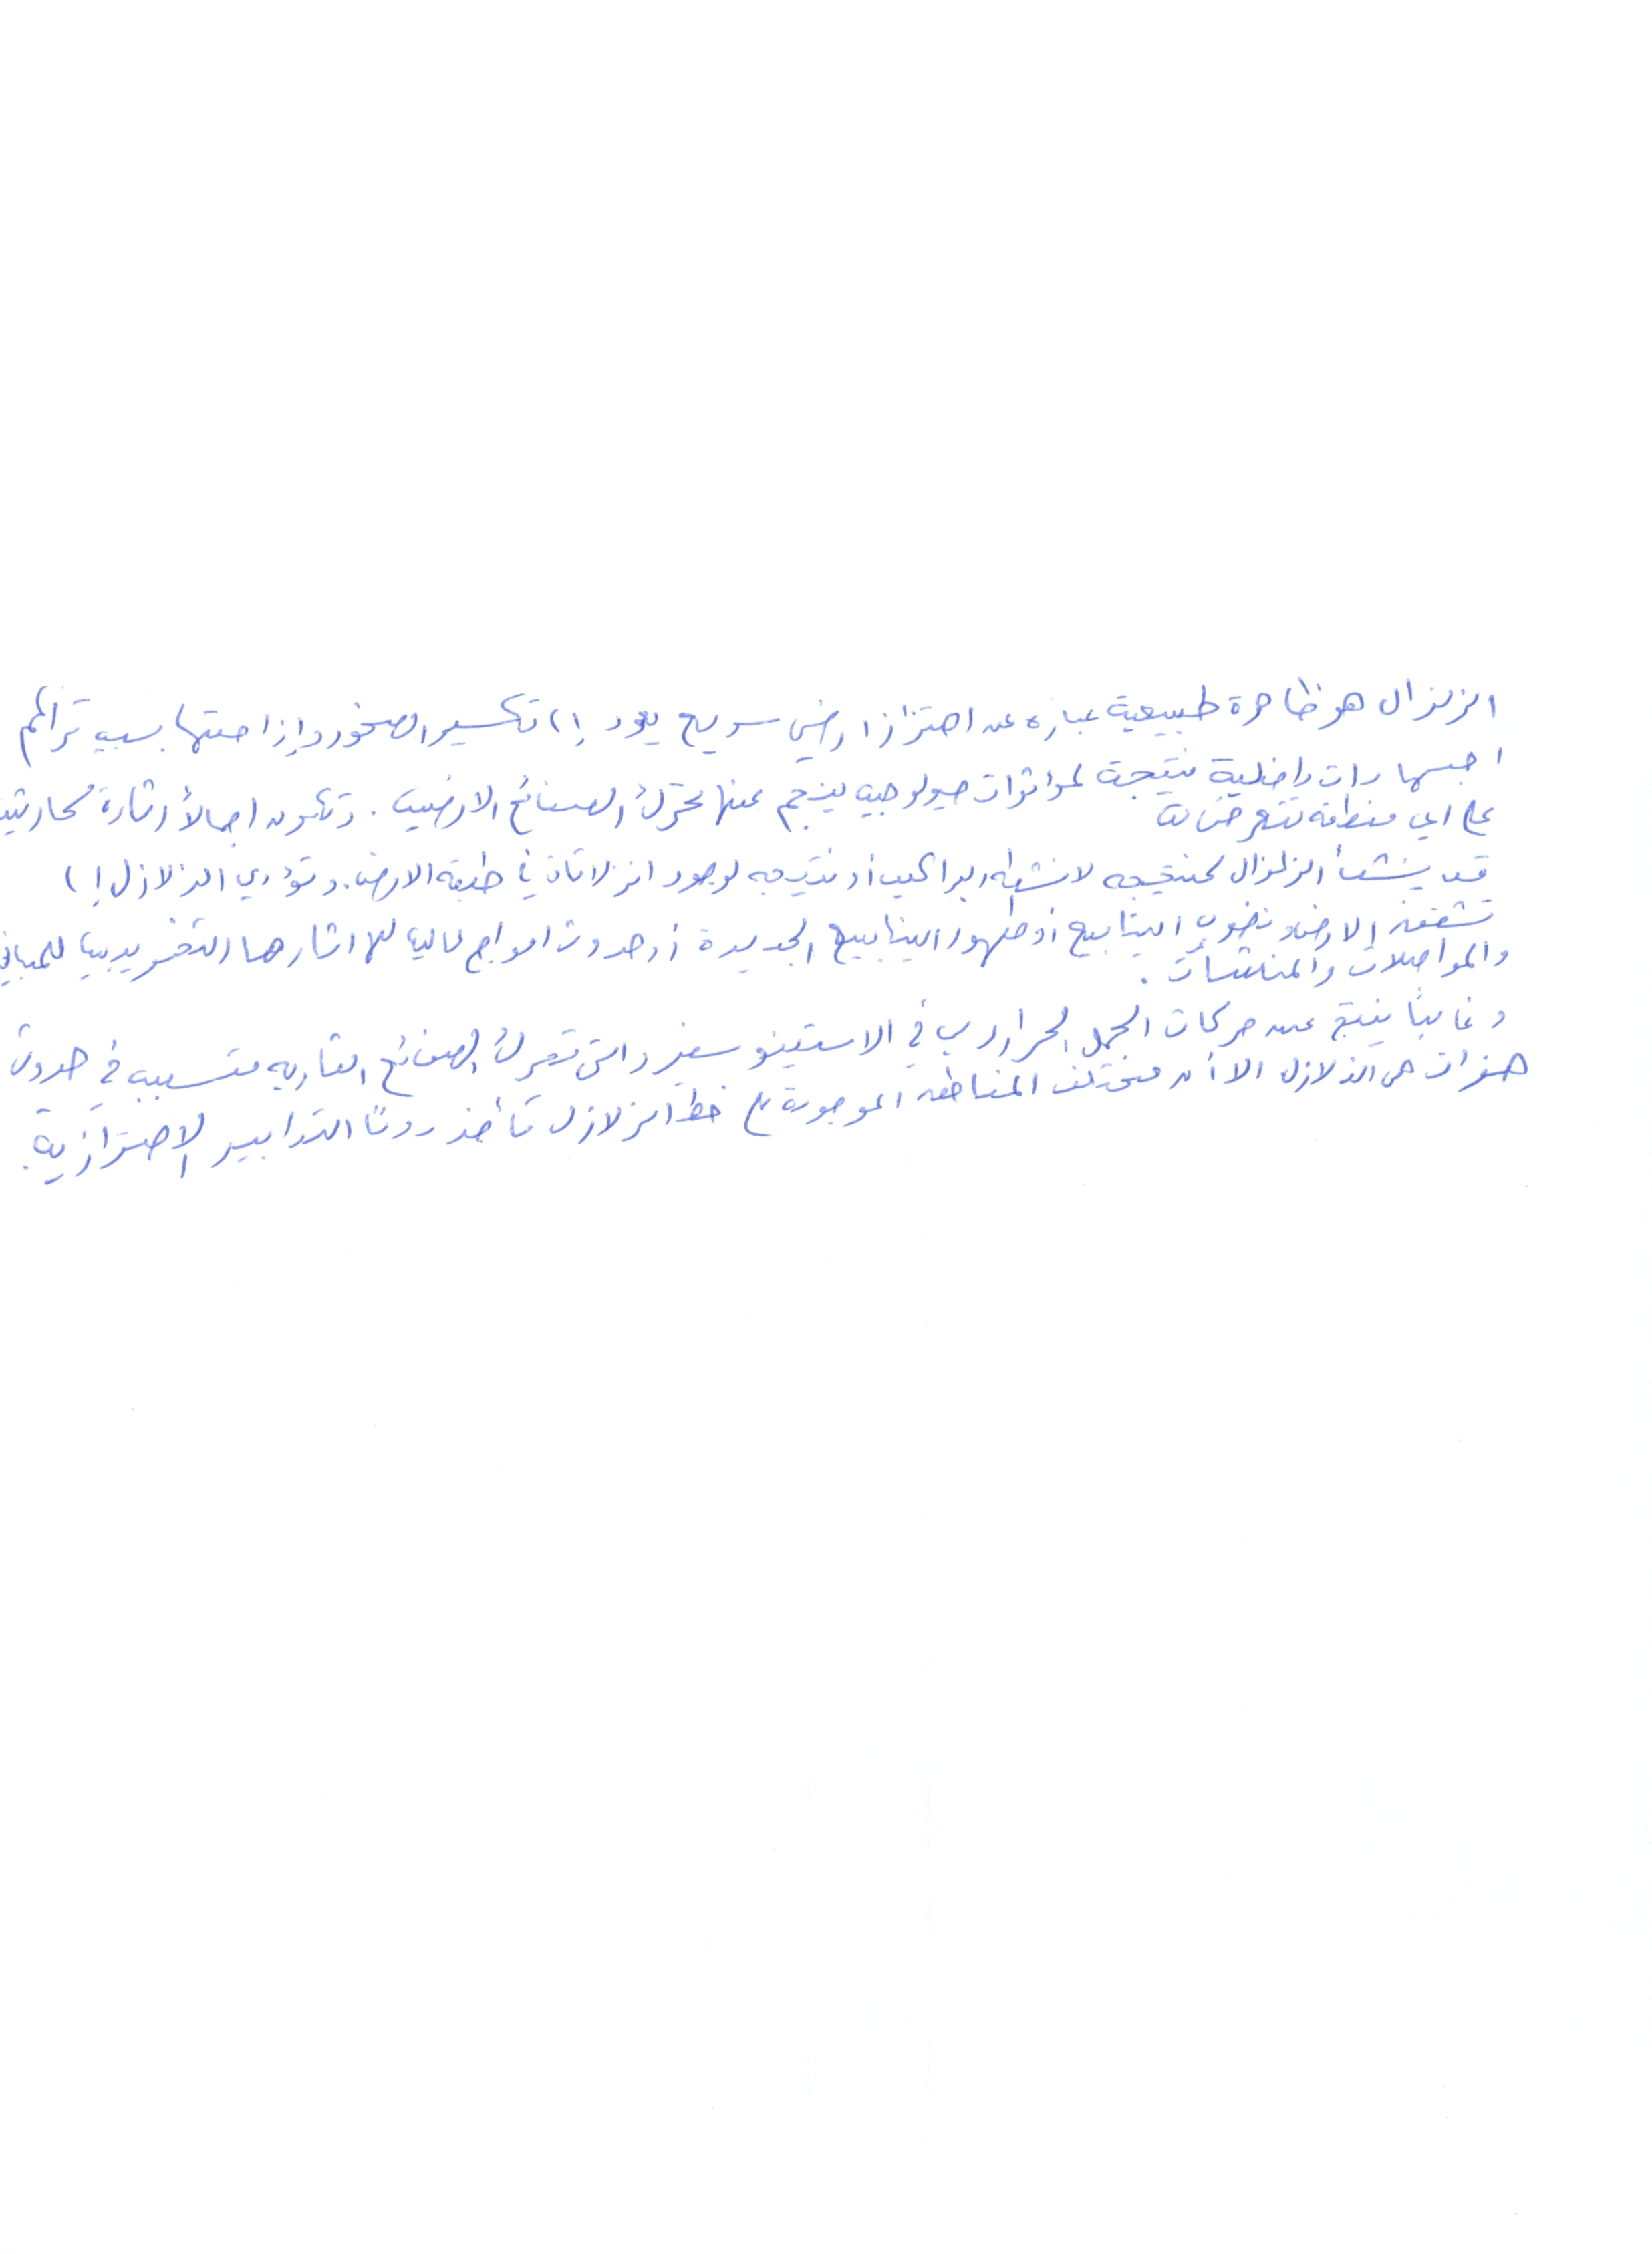 الزلزال هو ظاهرة طبيعية عبارة عن اهتزاز ارضي سريع يعود إلى تكسير الصخور وإزاحتها بسبب تراكم
اجهادات داخلية نتيجة لمؤثرات جيولوجيه ينجم عنها تحرك الصفائح الارضية. وتكون اجمالاً اثاره كارثية
على اي منطقه تتعرض له
قد ينشأ الزلزال كنتيجه لانشطه البراكين أو نتيجه لوجود انزلاقات في طبقه الارض. وتؤدي الزلازل إلى
تشقق الارض ونضوب الينابيع أو ظهور الينابيع الجديدة أو حدوث امواج عالية للها اثارها التخريبية للمباني
والمواصلات والمنشسأت.
وغالباً ينتج عن حركات الحمل الحراري في الاستينوسفير والتي تحرك الصفائح القاريه متسببه في حدوث
هزات هى الزلازل الا أن مختلف المناطق الموجودة على خط الزلازل تأخذ دومًا التدابير الاحترازية.